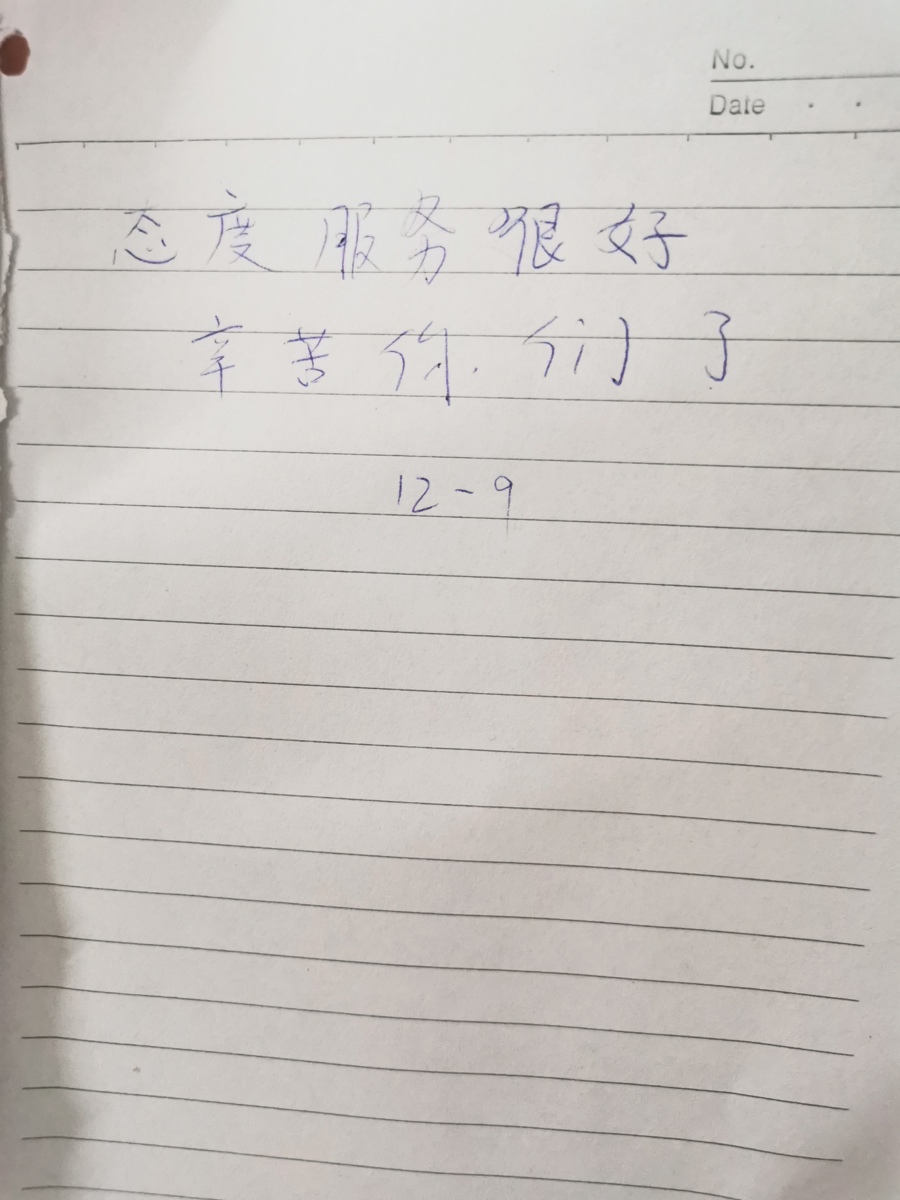 No.
Date . .
态度服务很好
辛苦你们了
12-9